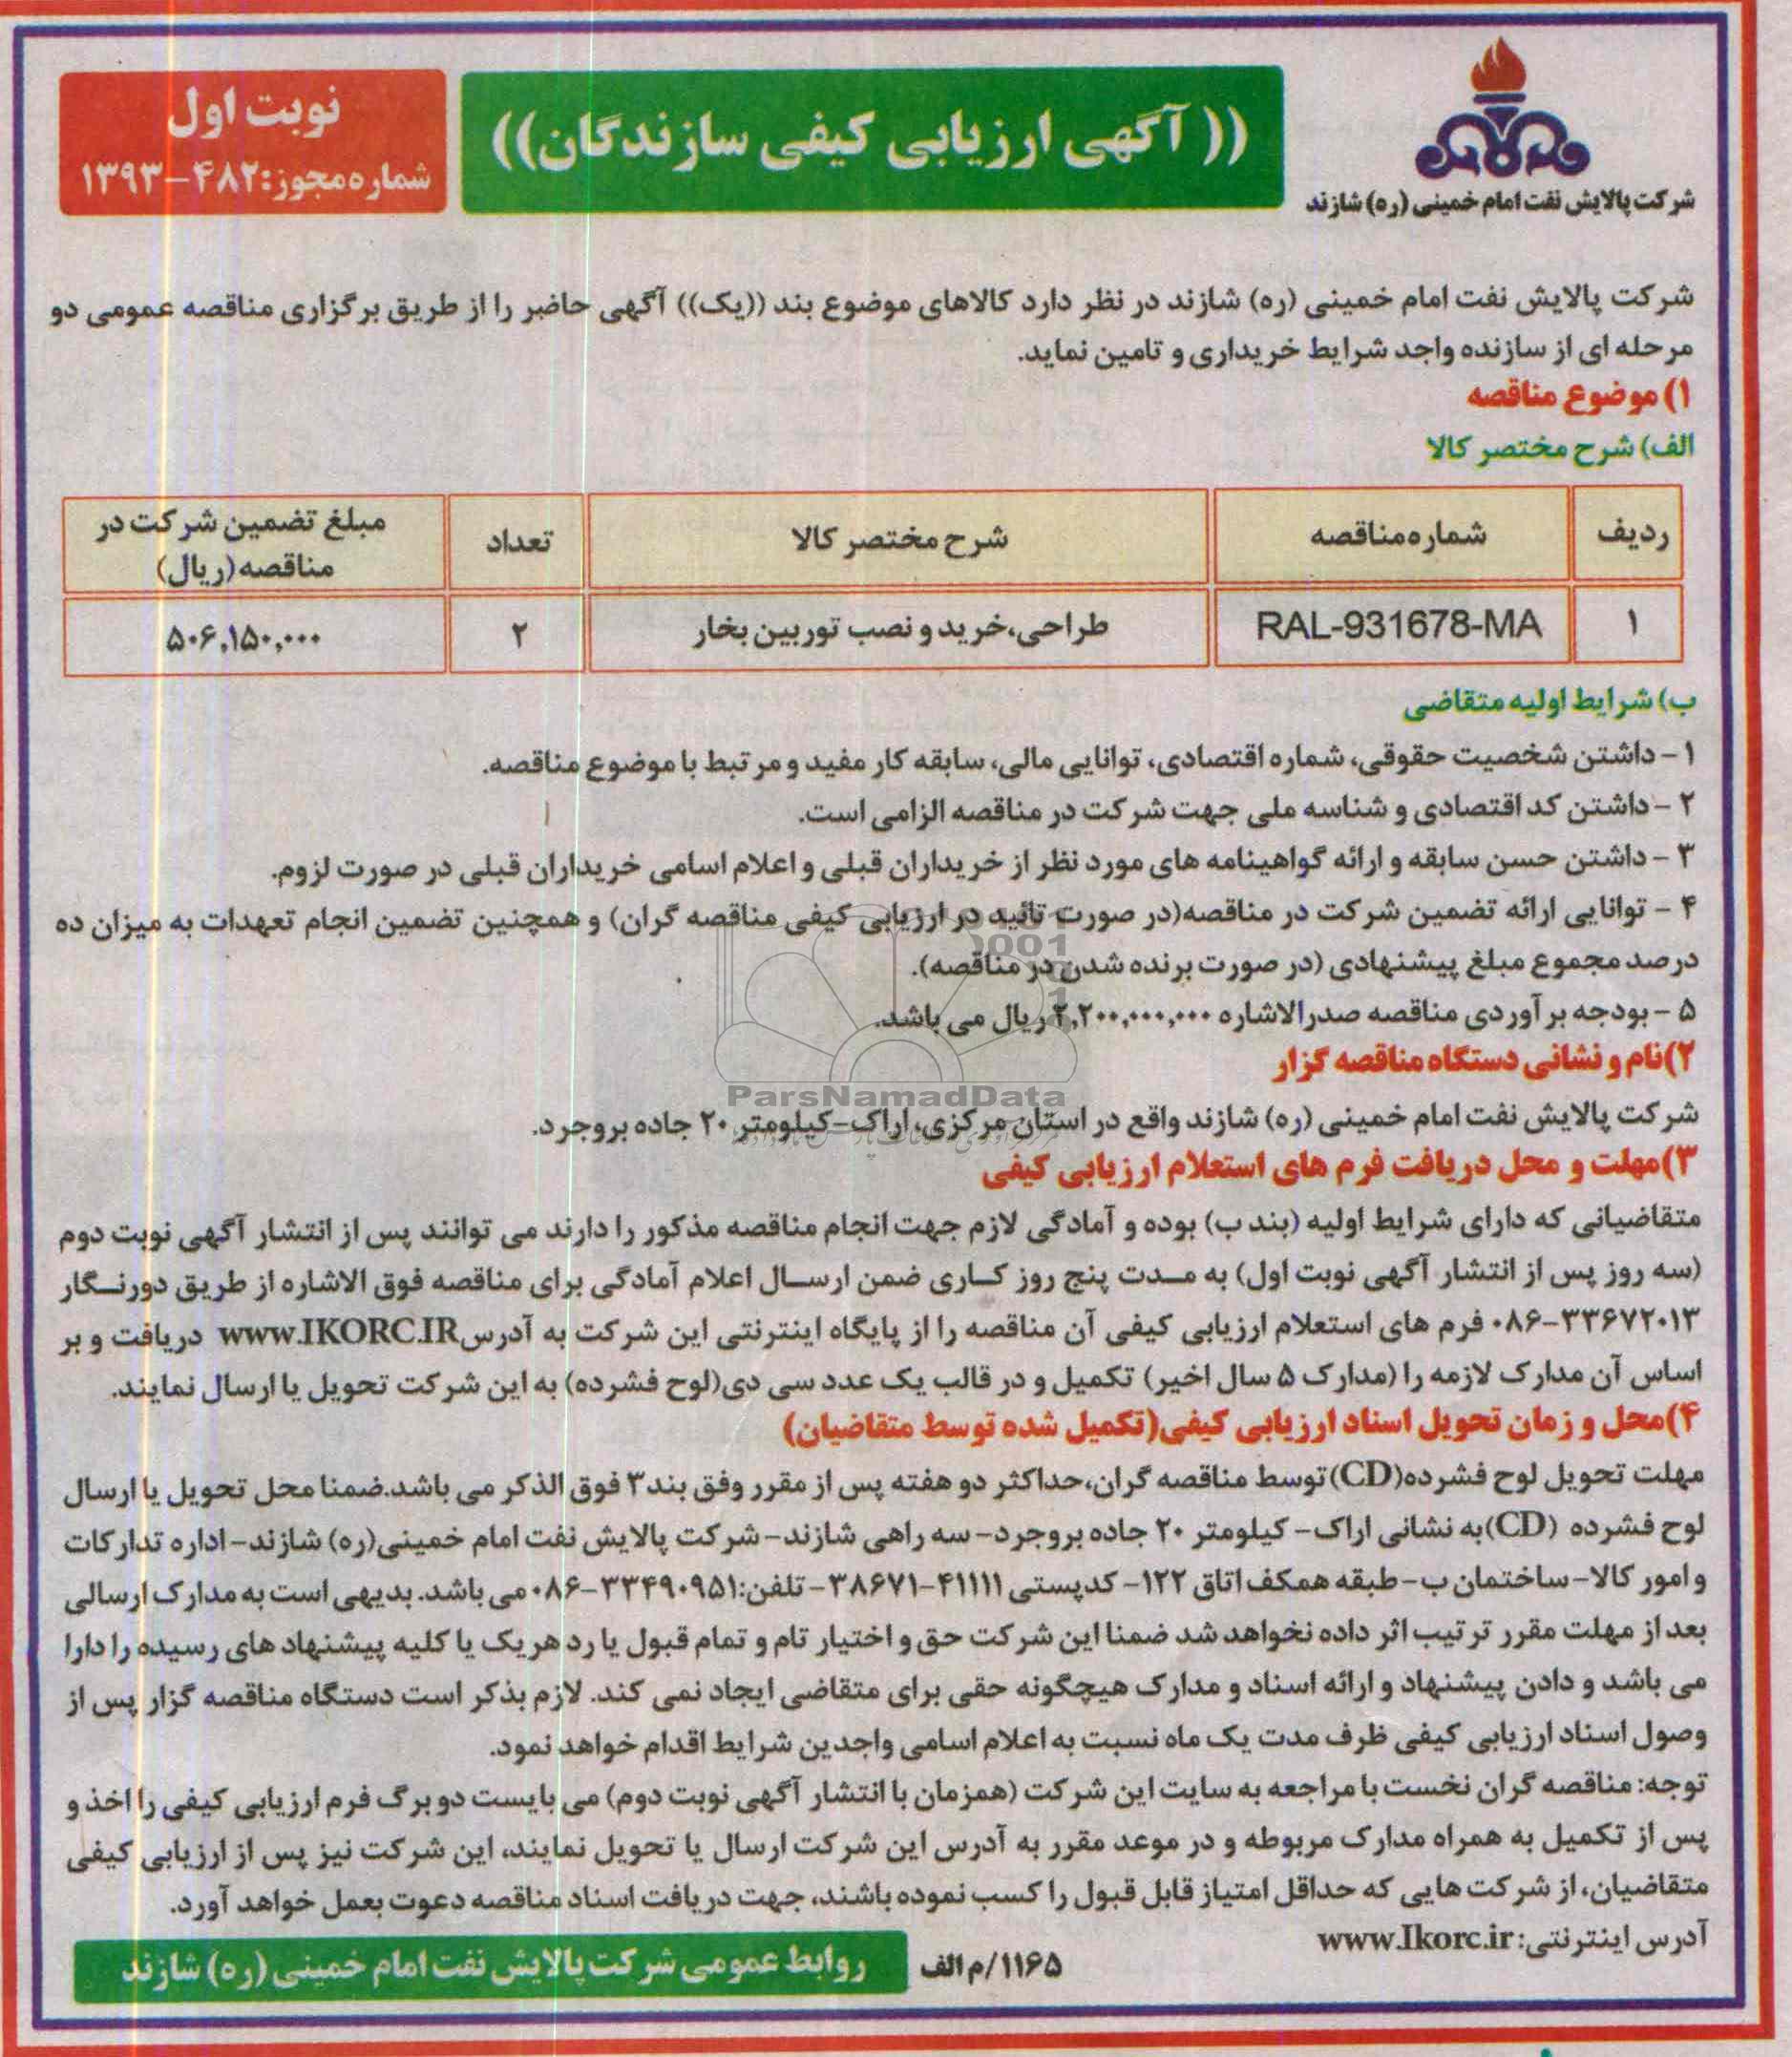 شرکت پالایش نفت امام خمینی (ره) شازند
(( آگهی ارزیابی کیفی سازندگان))
نوبت اول
شماره مجوز:۴۸۲-۱۳۹۳
شرکت پالایش نفت امام خمینی (ره) شازند در نظر دارد کالاهای موضوع بند ((یک)) آگهی حاضر را از طریق برگزاری مناقصه عمومی دو
مرحله ای از سازنده واجد شرایط خریداری و تامین نماید.
۱) موضوع مناقصه
الف) شرح مختصر کالا
ردیف شماره مناقصه شرح مختصر کالا تعداد مبلغ تضمین شرکت در
مناقصه(ریال)
۱ RAL-931678-MA طراحی،خرید و نصب توربین بخار ۲ ۵۰۶,۱۵۰,۰۰۰
ب) شرایط اولیه متقاضی
۱ - داشتن شخصیت حقوقی، شماره اقتصادی، توانایی مالی، سابقه کار مفید و مرتبط با موضوع مناقصه.
۲ - داشتن کد اقتصادی و شناسه ملی جهت شرکت در مناقصه الزامی است.
۳ - داشتن حسن سابقه و ارائه گواهینامه های مورد نظر از خریداران قبلی و اعلام اسامی خریداران قبلی در صورت لزوم.
۴ - توانایی ارائه تضمین شرکت در مناقصه(در صورت تائید در ارزیابی کیفی مناقصه گران) و همچنین تضمین انجام تعهدات به میزان ده
درصد مجموع مبلغ پیشنهادی (در صورت برنده شدن در مناقصه).
۵ - بودجه برآوردی مناقصه صدرالاشاره ۲,۲۰۰,۰۰۰,۰۰۰ ریال می باشد.
۲)نام و نشانی دستگاه مناقصه گزار
ParsNamadData
شرکت پالایش نفت امام خمینی (ره) شازند واقع در استان مرکزی، اراک-کیلومتر ۲۰ جاده بروجرد.
۳)مهلت و محل دریافت فرم های استعلام ارزیابی کیفی
متقاضیانی که دارای شرایط اولیه (بند ب) بوده و آمادگی لازم جهت انجام مناقصه مذکور را دارند می توانند پس از انتشار آگهی نوبت دوم
(سه روز پس از انتشار آگهی نوبت اول) به مدت پنج روز کاری ضمن ارسال اعلام آمادگی برای مناقصه فوق الاشاره از طریق دورنگار
۰۸۶-۳۳۶۷۲۰۱۳ فرم های استعلام ارزیابی کیفی آن مناقصه را از پایگاه اینترنتی این شرکت به آدرس www.IKORC.IR دریافت و بر
اساس آن مدارک لازمه را (مدارک ۵ سال اخیر) تکمیل و در قالب یک عدد سی دی(لوح فشرده) به این شرکت تحویل یا ارسال نمایند.
۴)محل و زمان تحویل اسناد ارزیابی کیفی(تکمیل شده توسط متقاضیان)
مهلت تحویل لوح فشرده(CD)توسط مناقصه گران،حداکثر دو هفته پس از مقرر وفق بند۳ فوق الذکر می باشد.ضمنا محل تحویل یا ارسال
لوح فشرده (CD)به نشانی اراک- کیلومتر ۲۰ جاده بروجرد- سه راهی شازند- شرکت پالایش نفت امام خمینی(ره) شازند- اداره تدارکات
و امور کالا- ساختمان ب- طبقه همکف اتاق ۱۲۲- کدپستی ۴۱۱۱۱-۳۸۶۷۱- تلفن:۳۳۴۹۰۹۵۱-۰۸۶ می باشد. بدیهی است به مدارک ارسالی
بعد از مهلت مقرر ترتیب اثر داده نخواهد شد ضمنا این شرکت حق و اختیار تام و تمام قبول یا رد هریک یا کلیه پیشنهاد های رسیده را دارا
می باشد و دادن پیشنهاد و ارائه اسناد و مدارک هیچگونه حقی برای متقاضی ایجاد نمی کند. لازم بذکر است دستگاه مناقصه گزار پس از
وصول اسناد ارزیابی کیفی ظرف مدت یک ماه نسبت به اعلام اسامی واجدین شرایط اقدام خواهد نمود.
توجه: مناقصه گران نخست با مراجعه به سایت این شرکت (همزمان با انتشار آگهی نوبت دوم) می بایست دو برگ فرم ارزیابی کیفی را اخذ و
پس از تکمیل به همراه مدارک مربوطه و در موعد مقرر به آدرس این شرکت ارسال یا تحویل نمایند، این شرکت نیز پس از ارزیابی کیفی
متقاضیان، از شرکت هایی که حداقل امتیاز قابل قبول را کسب نموده باشند، جهت دریافت اسناد مناقصه دعوت بعمل خواهد آورد.
آدرس اینترنتی: www.Ikorc.ir
۱۱۶۵/م الف
روابط عمومی شرکت پالایش نفت امام خمینی (ره) شازند